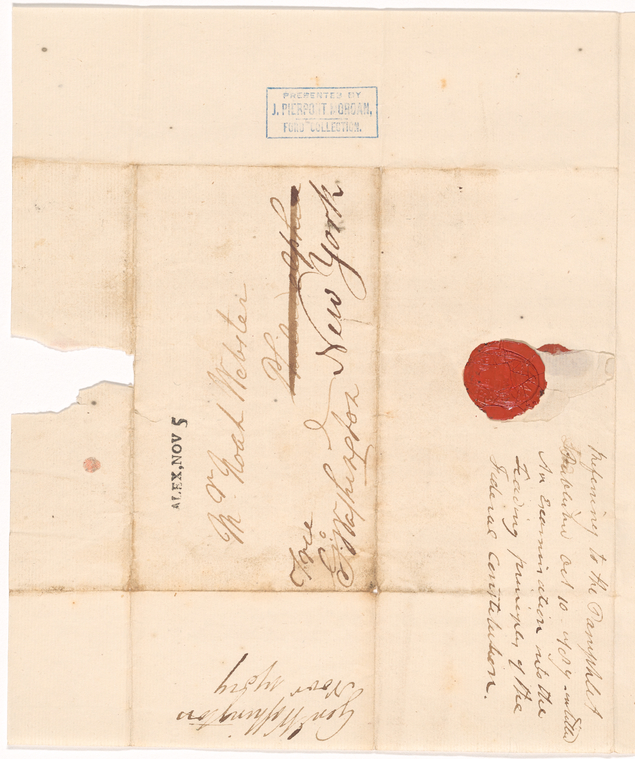 PRESENTED BY
J. PIERPONT MORGAN,
FORD COLLECTION.
ALEX, NOV 5
Mr. Noah Webster
New York
Free
Go: Washington
Genl Washington
Novr 1787
referring to the Pamphlet
Published Oct 10 1787 intitled
An Examination into the
Leading principles of the
Federal Constitution.